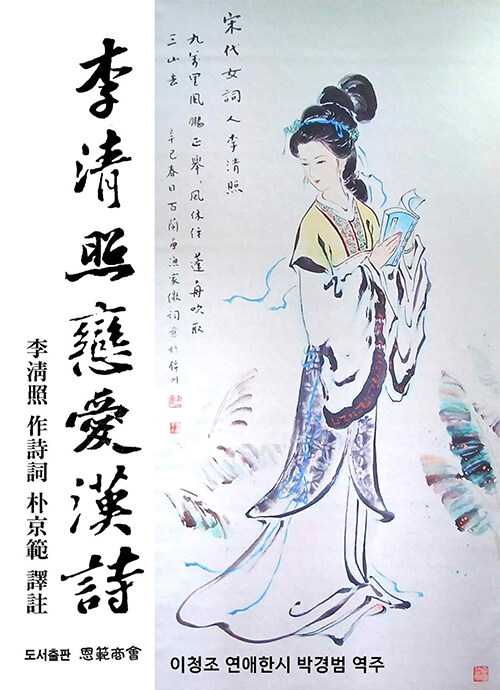 李清照戀愛漢詩
李淸照 作詩詞 朴京範 譯註
도서출판 恩範商會
宋代女詞人李清照
九萬里風鵬正舉,風休住 蓬舟吹取
三山去
辛巳春日百蘭画漁家傲詞意於錦州
이청조 연애한시 박경범 역주